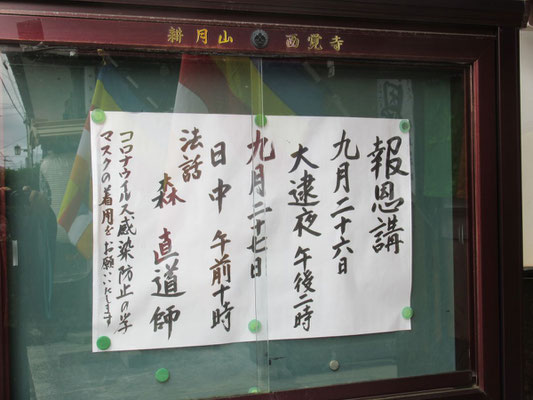 耕月山 西覚寺
報恩講
九月二十六日
大逮夜 午後二時
九月二十七日
日中 午前十時
法話
森 直道師
コロナウイルス感染防止の為
マスクの着用をお願いいたします